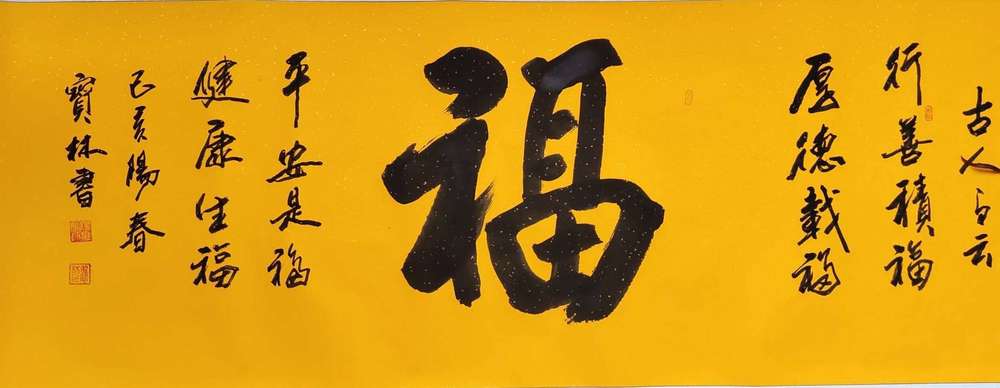 古人有云
行善積福
厚德載福
福
平安是福
健康生福
己亥陽春
寶林書